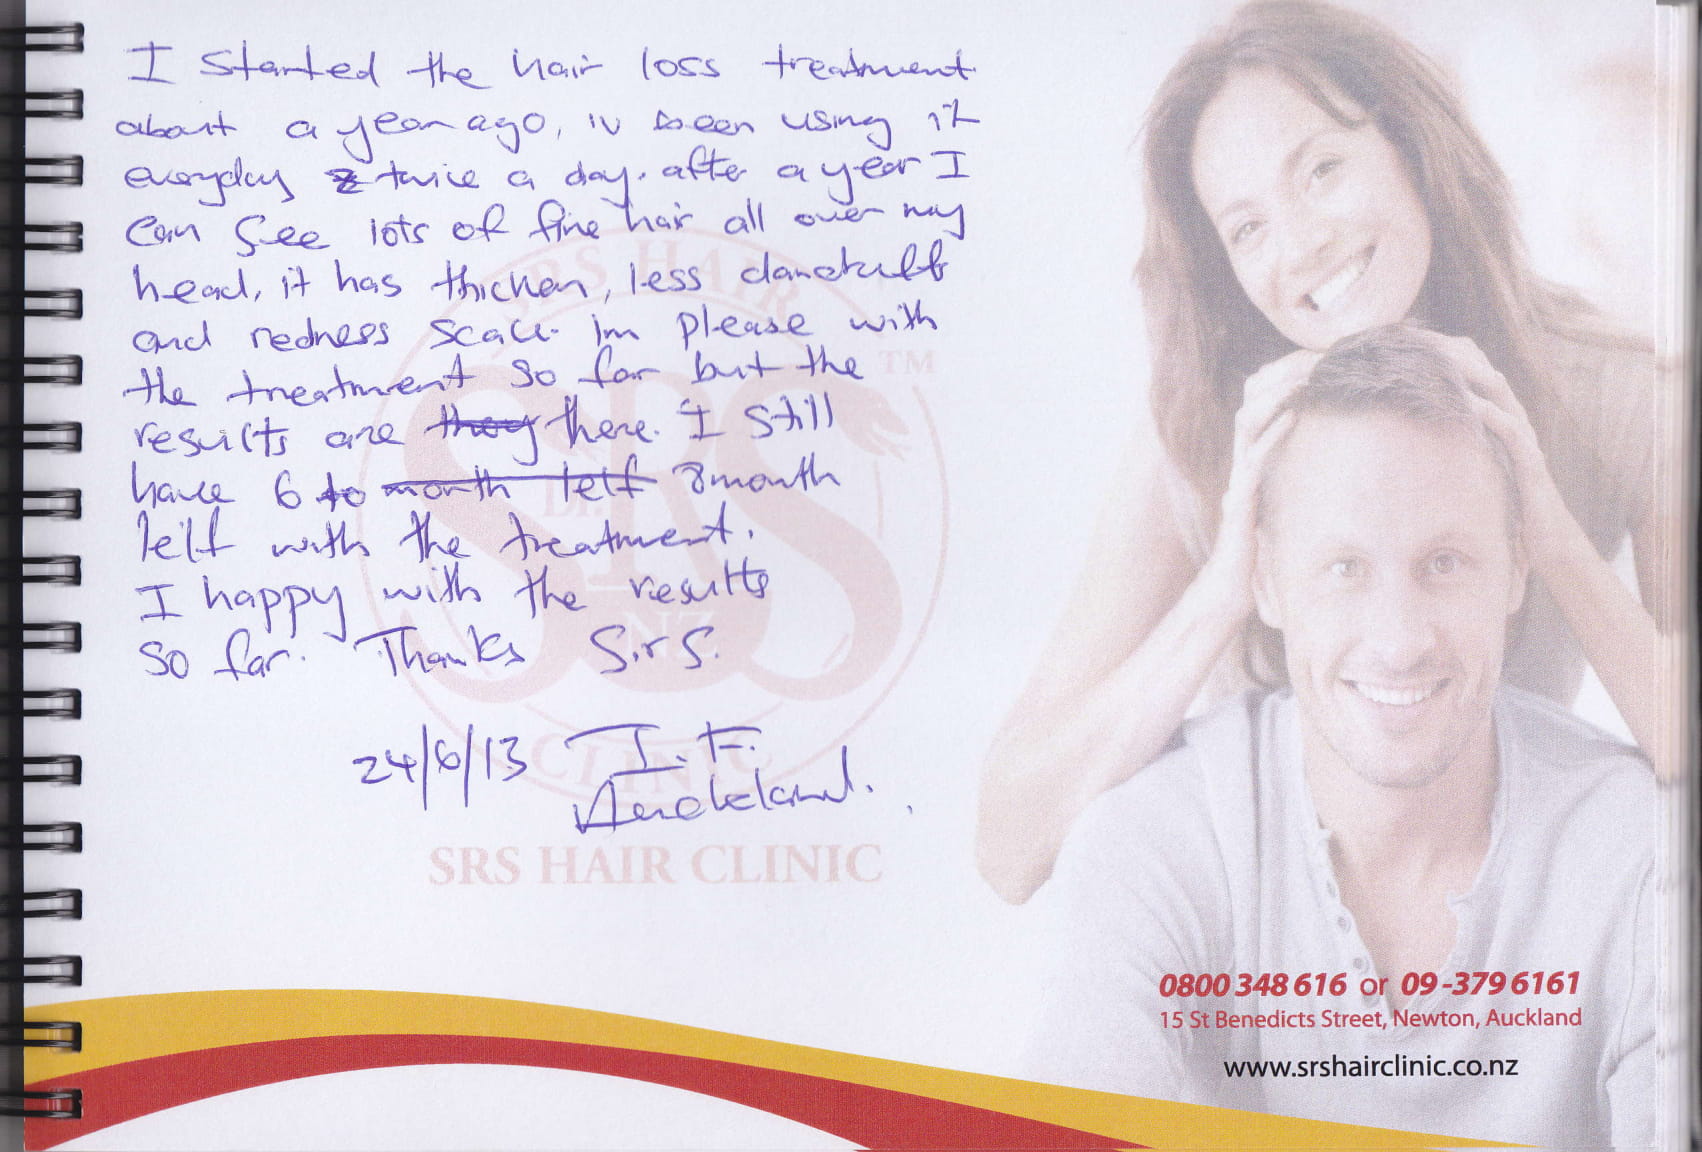 I started the hair loss treatment
about a year ago, iv been using it
everyday twice a day. after a year I
can see lots of fine hair all over my
head, it has thicken, less dandruff
and redness scalp. im please with
the treatment so far but the
results are they there. I still
have 6 to month left 8 month
left with the treatment.
I happy with the results
so far. Thanks S.r S.
24/6/13 I. F.
Auckland.
SRS HAIR
TM
SRS
Dr.
NZ
CLINIC
SRS HAIR CLINIC
0800 348 616 or 09-379 6161
15 St Benedicts Street, Newton, Auckland
www.srshairclinic.co.nz